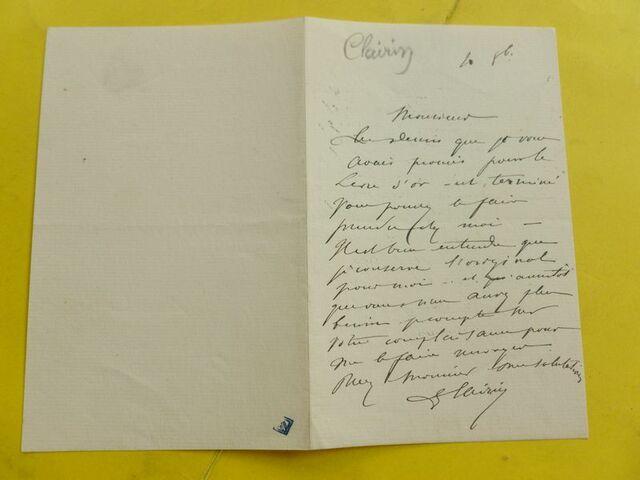 Clairin
10 8b.
Monsieur
Le dessin que je vous
avais promis pour le
Livre d'or est terminé
Vous pouvez le faire
prendre chez moi —
Il est bien entendu que
je conserve l'original
pour moi — et qu'aussitôt
que vous n'en aurez plus
besoin je compte sur
votre complaisance pour
me le faire renvoyer
Recevez Monsieur mes salutations
G Clairin